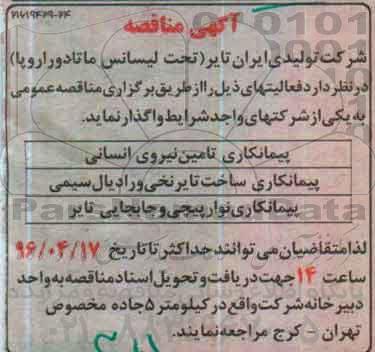 ۲۱۶۱۹۴۲۹-۲۴
آگهی مناقصه
شرکت تولیدی ایران تایر (تحت لیسانس ماتادور اروپا)
در نظر دارد فعالیتهای ذیل را از طریق برگزاری مناقصه عمومی
به یکی از شرکتهای واجد شرایط واگذار نماید.
پیمانکاری تامین نیروی انسانی
پیمانکاری ساخت تایر نخی و رادیال سیمی
پیمانکاری نوار پیچی و جابجایی تایر
لذا متقاضیان می توانند حداکثر تا تاریخ ۹۶/۰۴/۱۷
ساعت ۱۴ جهت دریافت و تحویل اسناد مناقصه به واحد
دبیرخانه شرکت واقع در کیلومتر ۵ جاده مخصوص
تهران - کرج مراجعه نمایند.